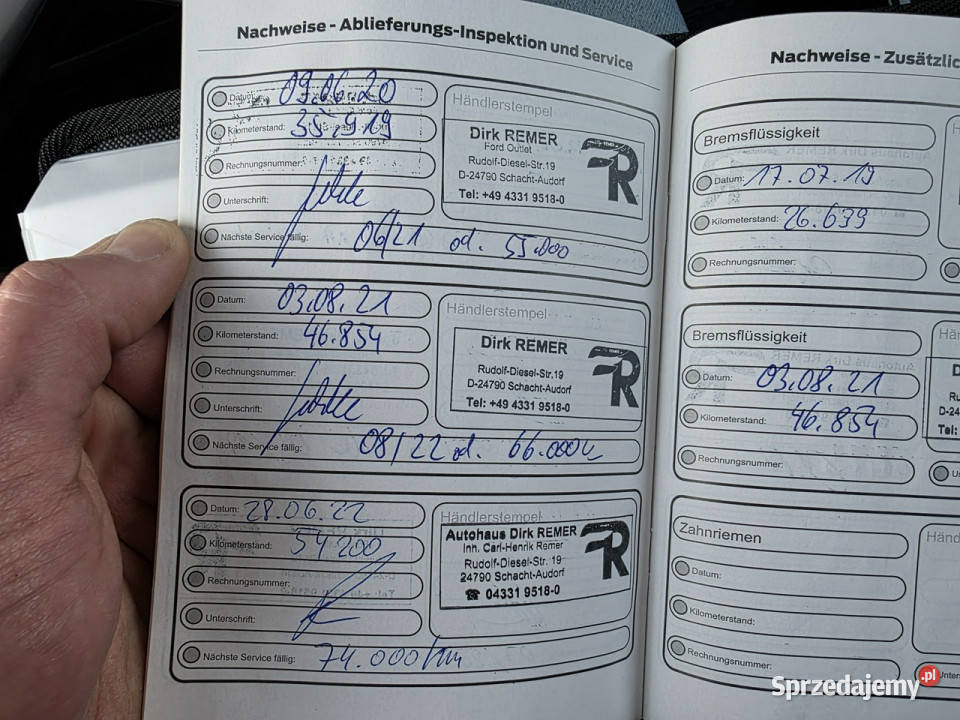 Nachweise - Ablieferungs-Inspektion und Service
Datum: 09.06.20
Kilometerstand: 35.919
Rechnungsnummer:
Unterschrift:
Nächste Service fällig: 06/21 od. 55.000
Händlerstempel
Dirk REMER
Ford Outlet
Rudolf-Diesel-Str.19
D-24790 Schacht-Audorf
Tel: +49 4331 9518-0
R
Datum: 03.08.21
Kilometerstand: 46.854
Rechnungsnummer:
Unterschrift:
Nächste Service fällig: 08/22 od. 66.000
Händlerstempel
Dirk REMER
Rudolf-Diesel-Str.19
D-24790 Schacht-Audorf
Tel: +49 4331 9518-0
R
Datum: 28.06.22
Kilometerstand: 54200
Rechnungsnummer:
Unterschrift:
Nächste Service fällig: 74.000 km
Händlerstempel
Autohaus Dirk REMER
Inh. Carl-Henrik Remer
Rudolf-Diesel-Str. 19
24790 Schacht-Audorf
☎ 04331 9518-0
R
Nachweise - Zusätzlic
Bremsflüssigkeit
Datum: 17.07.19
Kilometerstand: 26.639
Rechnungsnummer:
Bremsflüssigkeit
Datum: 03.08.21
Kilometerstand: 46.854
Rechnungsnummer:
Hä
D
Ru
D-24
Tel:
U
Zahnriemen
Datum:
Kilometerstand:
Rechnungsnummer:
Händ
Unters
Sprzedajemy.pl